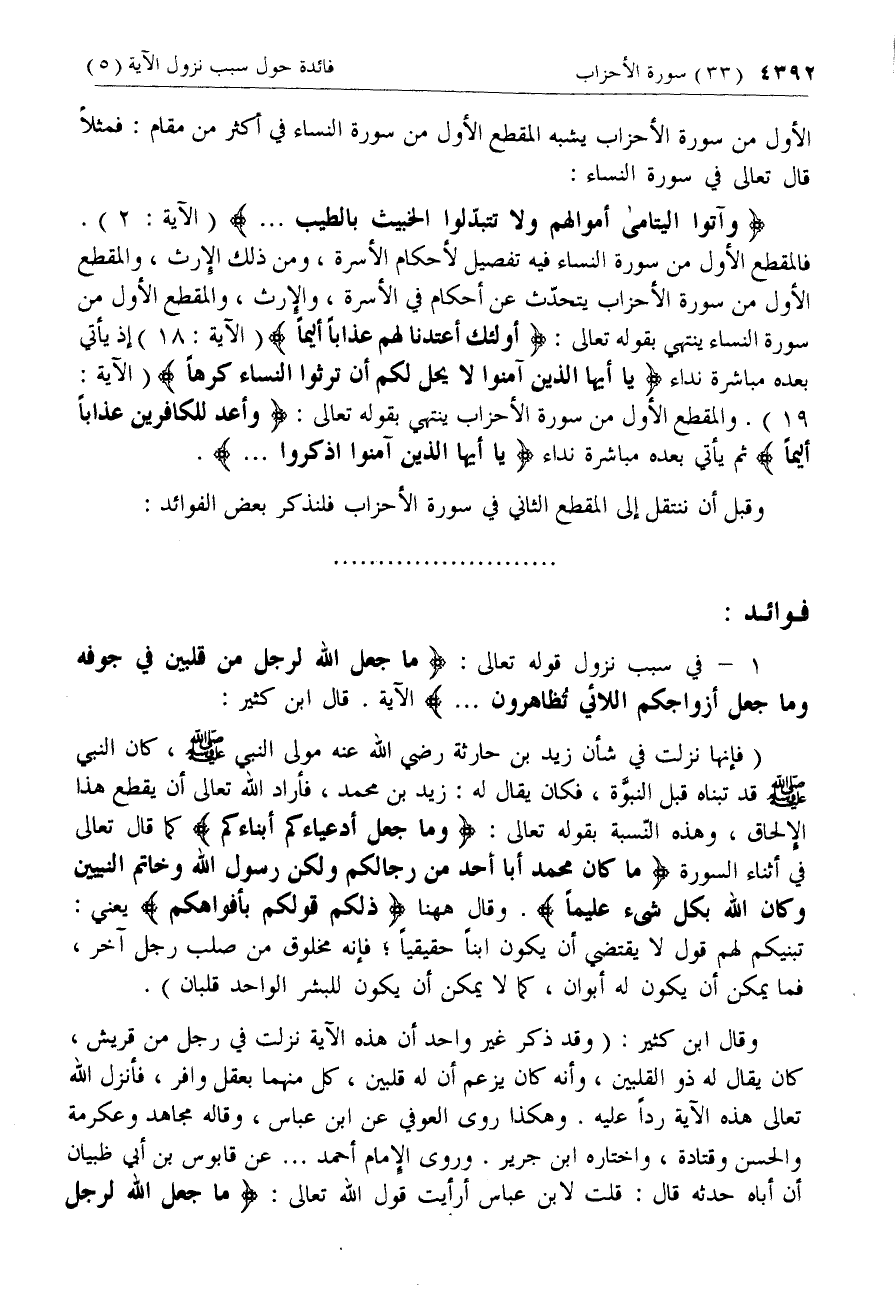 ٤٣٩٢ (٣٣) سورة الأحزاب فائدة حول سبب نزول الآية (٥)
الأول من سورة الأحزاب يشبه المقطع الأول من سورة النساء في أكثر من مقام : فمثلاً
قال تعالى في سورة النساء :
﴿ وآتوا اليتامىٰ أموالهم ولا تتبدّلوا الخبيث بالطيب ... ﴾ ( الآية : ٢ ) .
فالمقطع الأول من سورة النساء فيه تفصيل لأحكام الأسرة ، ومن ذلك الإرث ، والمقطع
الأول من سورة الأحزاب يتحدّث عن أحكام في الأسرة ، والإرث ، والمقطع الأول من
سورة النساء ينتهي بقوله تعالى : ﴿ أولئك أعتدنا لهم عذاباً أليماً ﴾ ( الآية : ١٨ ) إذ يأتي
بعده مباشرة نداء ﴿ يا أيها الذين آمنوا لا يحل لكم أن ترثوا النساء كرهاً ﴾ ( الآية :
١٩ ) . والمقطع الأول من سورة الأحزاب ينتهي بقوله تعالى : ﴿ وأعد للكافرين عذاباً
أليماً ﴾ ثم يأتي بعده مباشرة نداء ﴿ يا أيها الذين آمنوا اذكروا ... ﴾ .
وقبل أن ننتقل إلى المقطع الثاني في سورة الأحزاب فلنذكر بعض الفوائد :
.........................
فـوائـد :
١ – في سبب نزول قوله تعالى : ﴿ ما جعل الله لرجل من قلبين في جوفه
وما جعل أزواجكم اللائي تُظاهرون ... ﴾ الآية . قال ابن كثير :
( فإنها نزلت في شأن زيد بن حارثة رضي الله عنه مولى النبي ﷺ ، كان النبي
ﷺ قد تبناه قبل النبوَّة ، فكان يقال له : زيد بن محمد ، فأراد الله تعالى أن يقطع هذا
الإلحاق ، وهذه النّسبة بقوله تعالى : ﴿ وما جعل أدعياءكم أبناءكم ﴾ كما قال تعالى
في أثناء السورة ﴿ ما كان محمد أبا أحد من رجالكم ولكن رسول الله وخاتم النبيين
وكان الله بكل شيء عليماً ﴾ . وقال ههنا ﴿ ذلكم قولكم بأفواهكم ﴾ يعني :
تبنيكم لهم قول لا يقتضي أن يكون ابناً حقيقياً ؛ فإنه مخلوق من صلب رجل آخر ،
فما يمكن أن يكون له أبوان ، كما لا يمكن أن يكون للبشر الواحد قلبان ) .
وقال ابن كثير : ( وقد ذكر غير واحد أن هذه الآية نزلت في رجل من قريش ،
كان يقال له ذو القلبين ، وأنه كان يزعم أن له قلبين ، كل منهما بعقل وافر ، فأنزل الله
تعالى هذه الآية رداً عليه . وهكذا روى العوفي عن ابن عباس ، وقاله مجاهد وعكرمة
والحسن وقتادة ، واختاره ابن جرير . وروى الإمام أحمد ... عن قابوس بن أبي ظبيان
أن أباه حدثه قال : قلت لابن عباس أرأيت قول الله تعالى : ﴿ ما جعل الله لرجل